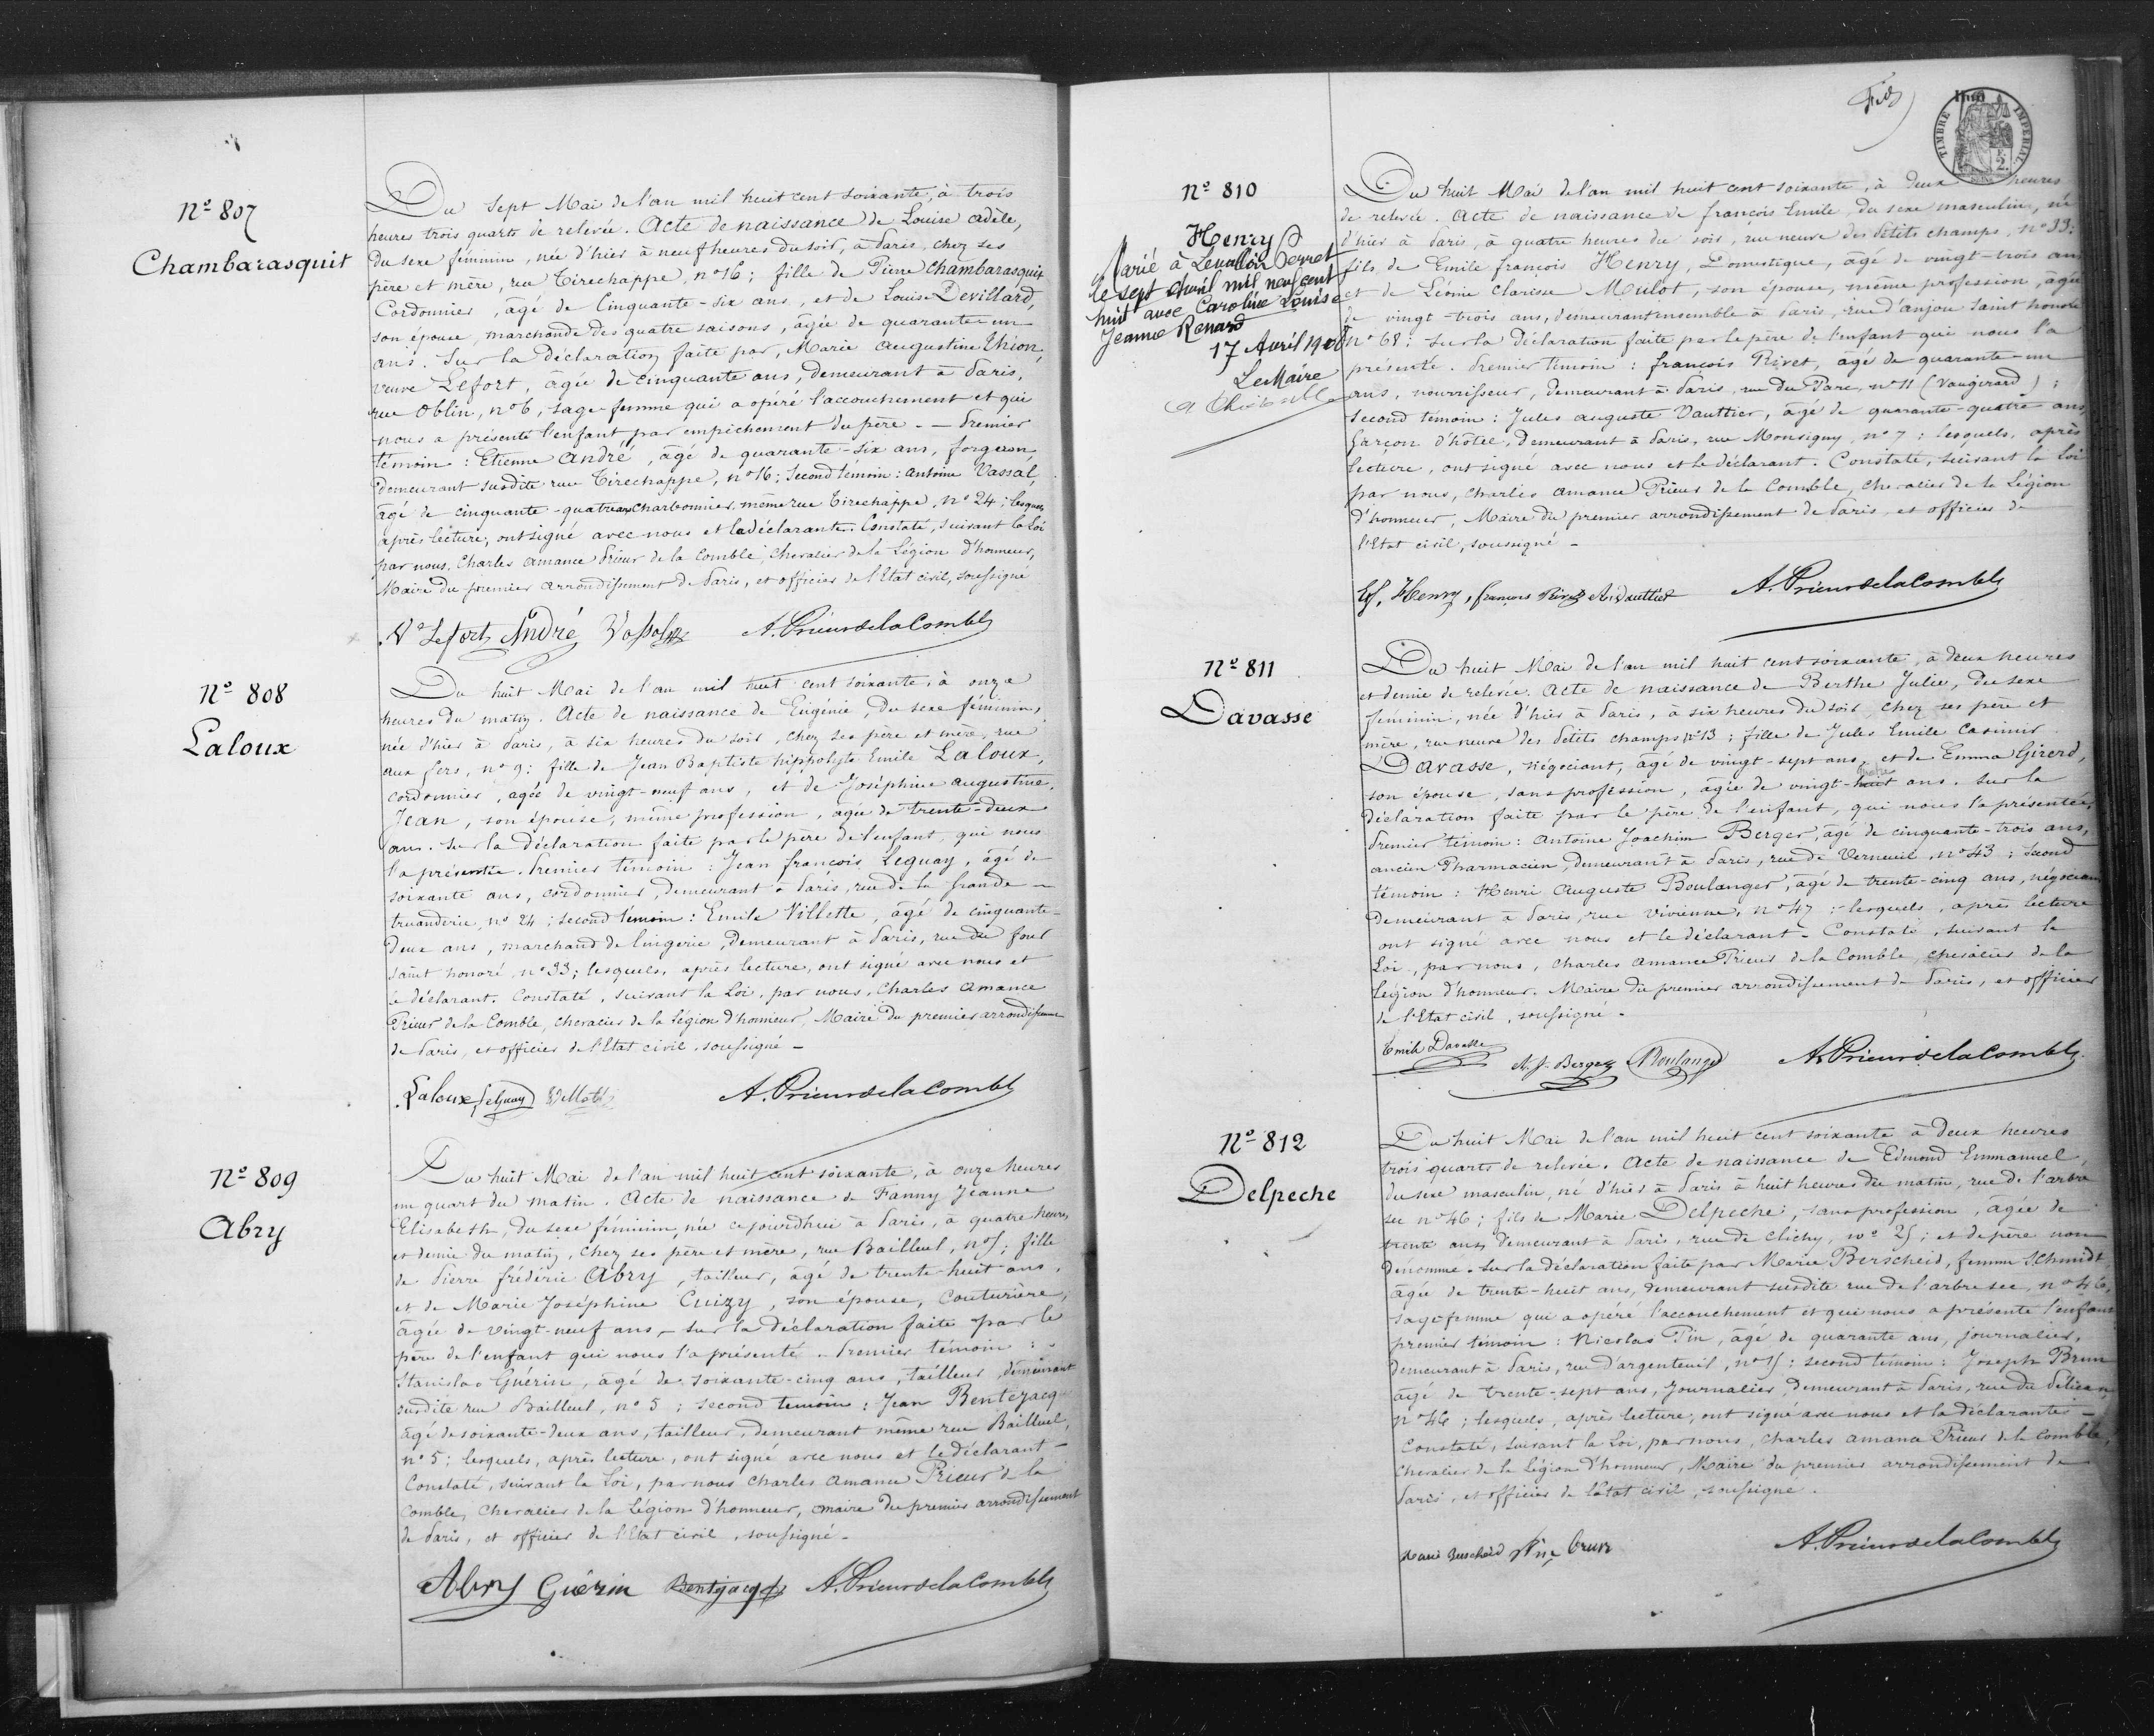 N° 807
Chambarasquit
Du Sept Mai de l'an mil huit cent soixante, à trois
heures trois quarts de relevée. Acte de naissance de Louise adèle,
du sexe féminin, née d'hier à neuf heures du soir, à Paris, chez ses
père et mère, rue Tirechappe, n° 16; fille de Pierre Chambarasquit
Cordonnier, âgé de Cinquante-six ans, et de Louise Devillard,
son épouse, marchande des quatre saisons, âgée de quarante-un
ans. Sur la déclaration faite par, Marie Augustine Thion,
veuve Lefort, âgée de cinquante ans, demeurant à Paris,
rue Oblin, n° 6, sage femme qui a opéré l'accouchement et qui
nous a présenté l'enfant par empêchement du père. — Premier
témoin : Etienne André, âgé de quarante-six ans, forgeron,
demeurant susdite rue Tirechappe, n° 16; Second témoin : Antoine Vassal,
âgé de cinquante-quatre ans charbonnier, même rue Tirechappe, n° 24; lesquels
après lecture, ont signé avec nous et la déclarante. Constaté, suivant la Loi
par nous, Charles Amance Prieur de la Comble, Chevalier de la Légion d'honneur,
Maire du premier arrondissement de Paris, et officier de l'Etat civil, soussigné
Ve Lefort André Vassal A. Prieur de la Comble
N° 808
Laloux
Du huit Mai de l'an mil huit cent soixante, à onze
heures du matin. Acte de naissance de Eugénie, du sexe féminin,
née d'hier à Paris, à six heures du soir, chez ses père et mère, rue
aux fers, n° 9; fille de Jean Baptiste hippolyte Emile Laloux,
cordonnier, agée de vingt-neuf ans, et de Joséphine augustine
Jean, son épouse, même profession, agée de trente-deux
ans. Sur la déclaration faite par le père de l'enfant, qui nous
l'a présentée. Premier témoin : Jean françois Leguay, âgé de
soixante ans, cordonnier, demeurant à Paris, rue de la Grande
truanderie, n° 24; second témoin : Emile Villette, âgé de cinquante-
deux ans, marchand de lingerie, demeurant à Paris, rue du four
saint honoré, n° 33; lesquels, après lecture, ont signé avec nous et
le déclarant. Constaté, suivant la Loi, par nous, Charles Amance
Prieur de la Comble, chevalier de la Légion d'honneur, Maire du premier arrondissement
de Paris, et officier de l'Etat civil, soussigné —
Laloux Leguay Villette A. Prieur de la Comble
N° 809
Abry
Du huit Mai de l'an mil huit cent soixante, à onze heures
un quart du matin. Acte de naissance de Fanny Jeanne
Elisabeth, du sexe féminin, née cejourd'hui à Paris, à quatre heures
et demie du matin, chez ses père et mère, rue Bailleul, n° 5; fille
de Pierre frédéric Abry, tailleur, âgé de trente-huit ans,
et de Marie Joséphine Cuizy, son épouse, Couturière,
âgée de vingt-neuf ans — sur la déclaration faite par le
père de l'enfant qui nous l'a présenté. Premier témoin :
Stanislas Guérin, âgé de soixante-cinq ans, tailleur, demeurant
susdite rue Bailleul, n° 5; second témoin : Jean Bentejacq
âgé de soixante-deux ans, tailleur, demeurant même rue Bailleul,
n° 5; lesquels, après lecture, ont signé avec nous et le déclarant —
Constaté, suivant la Loi, par nous Charles Amance Prieur de la
Comble, Chevalier de la Légion d'honneur, maire du premier arrondissement
de Paris, et officier de l'Etat civil, soussigné —
Abry Guérin Bentejacq A. Prieur de la Comble
TIMBRE IMPERIAL
N° 810
Henry
Marié à Levallois Perret
le sept avril mil neuf cent
huit avec Caroline Louise
Jeanne Renard
17 Avril 1908
Le Maire
Du huit Mai de l'an mil huit cent soixante, à deux heures
de relevée. Acte de naissance de françois Emile, du sexe masculin, né
d'hier à Paris, à quatre heures du soir, rue neuve des Petits champs, n° 33;
fils de Emile françois Henry, Domestique, âgé de vingt-trois ans
et de Léonie Clarisse Mulot, son épouse, même profession, âgée
de vingt-trois ans, demeurant ensemble à Paris, rue d'anjou Saint honoré
n° 68; sur la déclaration faite par le père de l'enfant qui nous l'a
présenté. Premier témoin : françois Rivet, âgé de quarante-un
ans, nourrisseur, demeurant à Paris, rue du Parc, n° 11 (Vaugirard);
second témoin : Jules auguste Vauttier, âgé de quarante-quatre ans,
garçon d'hôtel, demeurant à Paris, rue Monsigny, n° 7; lesquels, après
lecture, ont signé avec nous et le déclarant. Constaté, suivant la Loi
par nous, Charles amance Prieur de la Comble, chevalier de la Légion
d'honneur, Maire du premier arrondissement de Paris, et officier de
l'Etat civil, soussigné —
Henry, françois Rivet A. Vauttier A. Prieur de la Comble
N° 811
Davasse
Du huit Mai de l'an mil huit cent soixante, à deux heures
et demie de relevée. Acte de naissance de Berthe Julie, du sexe
féminin, née d'hier à Paris, à six heures du soir, chez ses père et
mère, rue neuve des Petits champs n° 13; fille de Jules Emile Casimir
Davasse, négociant, âgé de vingt-sept ans, et de Emma Girerd,
son épouse, sans profession, âgée de vingt-quatre ans. Sur la
déclaration faite par le père de l'enfant, qui nous l'a présentée,
Premier témoin : Antoine Joachim Berger, âgé de cinquante-trois ans,
ancien Pharmacien, demeurant à Paris, rue de Verneuil, n° 43; second
témoin : Henri Auguste Boulanger, âgé de trente-cinq ans, négociant
demeurant à Paris, rue Vivienne, n° 47; lesquels, après lecture
ont signé avec nous et le déclarant — Constaté, suivant la
Loi, par nous, Charles Amance Prieur de la Comble, chevalier de la
Légion d'honneur, Maire du premier arrondissement de Paris, et officier
de l'Etat civil, soussigné —
Emile Davasse A. J. Berger Boulanger A. Prieur de la Comble
N° 812
Delpeche
Du huit Mai de l'an mil huit cent soixante à deux heures
trois quarts de relevée. Acte de naissance de Edmond Emmanuel,
du sexe masculin, né d'hier à Paris à huit heures du matin, rue de l'arbre
sec n° 46; fils de Marie Delpeche, sans profession, âgée de
trente ans, demeurant à Paris, rue de Clichy, n° 25; et de père non
dénommé. Sur la déclaration faite par Marie Berscheid, femme Schmidt
âgée de trente-huit ans, demeurant susdite rue de l'arbre sec, n° 46,
sage femme qui a opéré l'accouchement et qui nous a présenté l'enfant
premier témoin : Nicolas Pin, âgé de quarante ans, journalier,
demeurant à Paris, rue d'argenteuil, n° 15; second témoin : Joseph Brun
âgé de trente-sept ans, Journalier, demeurant à Paris, rue du Pélican,
n° 46; lesquels, après lecture, ont signé avec nous et la déclarante —
Constaté, suivant la Loi, par nous, Charles amance Prieur de la Comble,
Chevalier de la Légion d'honneur, Maire du premier arrondissement de
Paris, et officier de l'état civil, soussigné.
Marie Berscheid Pin brun A. Prieur de la Comble